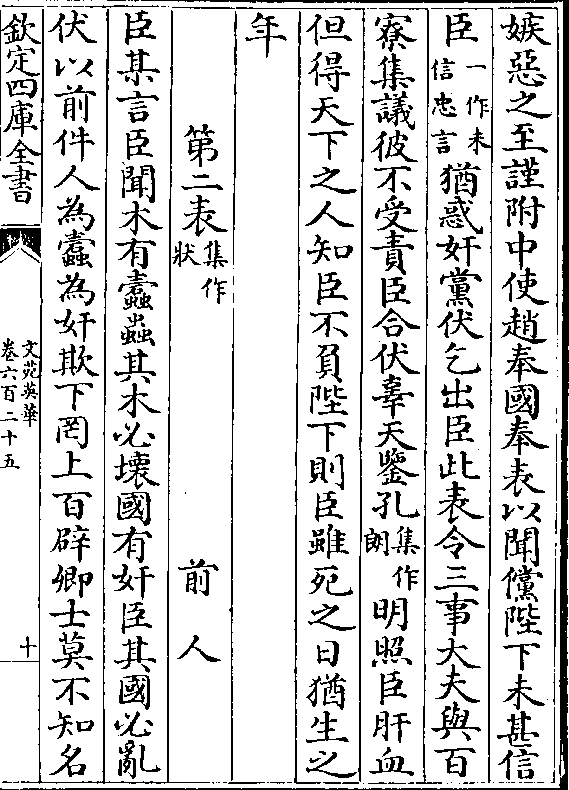 嫉惡之至謹附中使趙奉國奉表以聞儻陛下未甚信
臣一作未信忠言猶惑奸黨伏乞出臣此表令三事大夫與百
寮集議彼不受責臣合伏辜天鑒孔集作朗明照臣肝血
但得天下之人知臣不負陛下則臣雖死之日猶生之
年
第二表集作狀 前人
臣某言臣聞木有蠹蟲其木必壞國有奸臣其國必亂
伏以前件人為蠹為奸欺下罔上百辟卿士莫不知名
欽定四庫全書
文苑英華
卷六百二十五
十